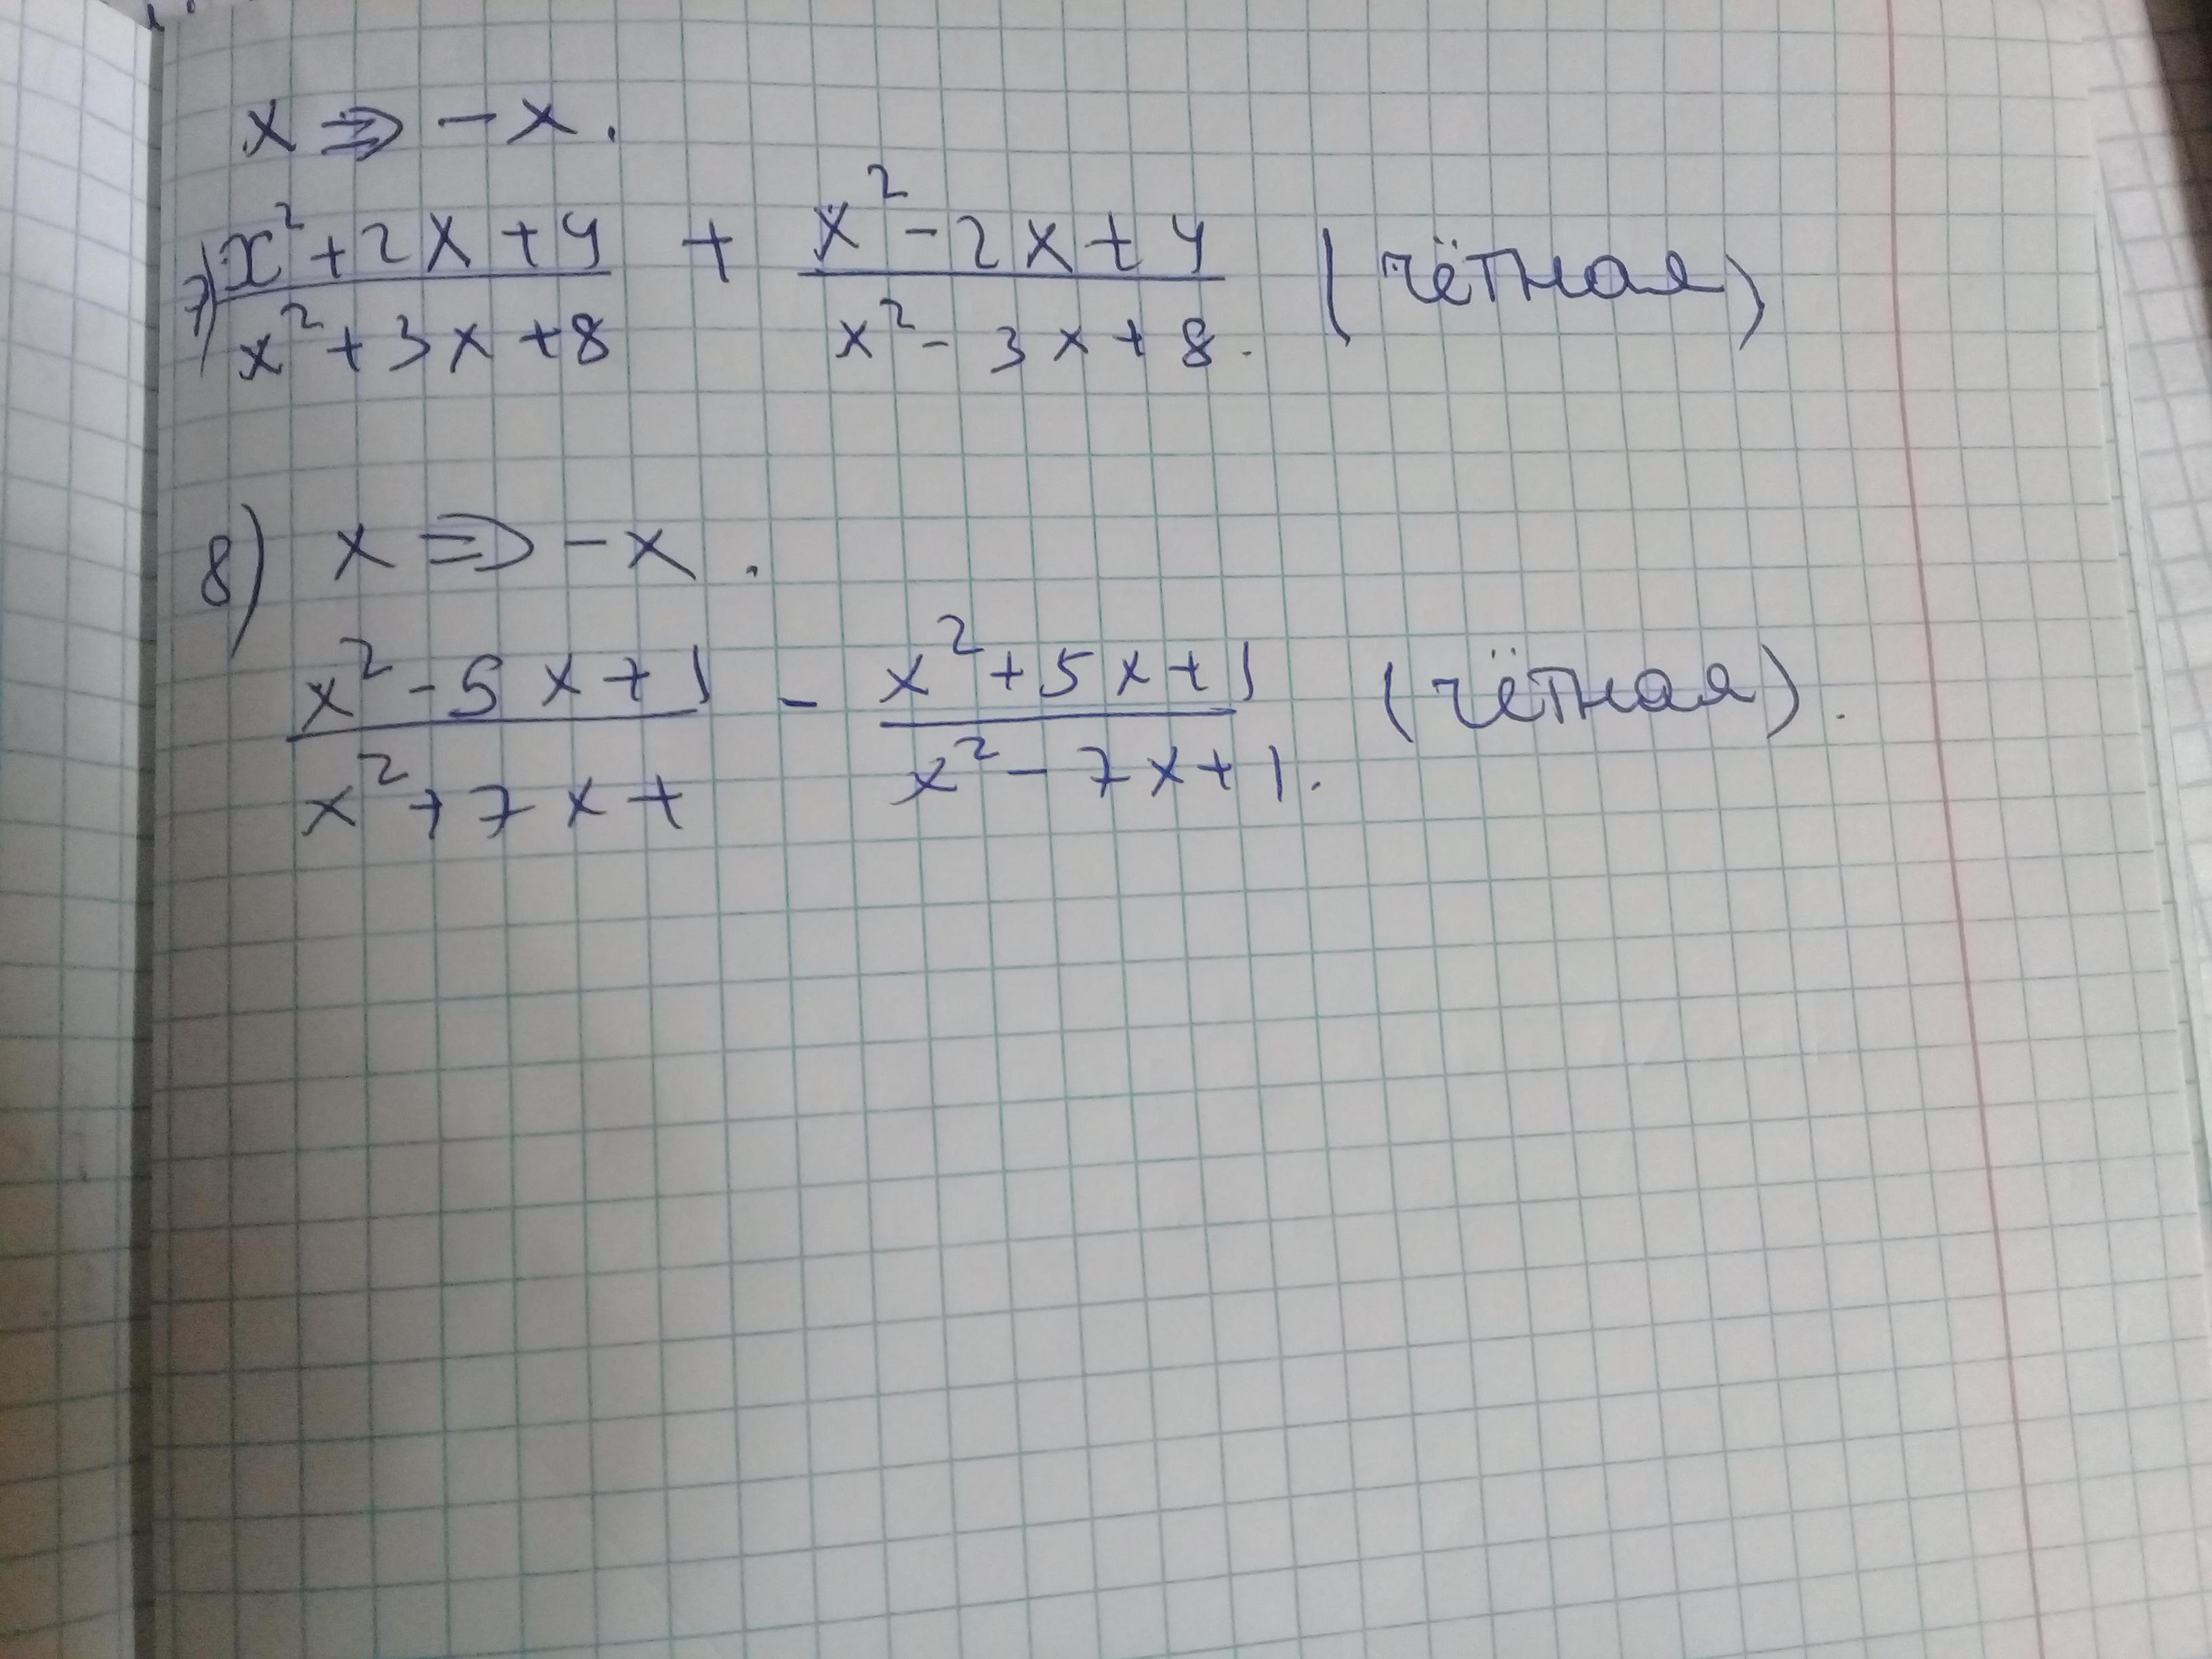 x ⇒ -x.
7) x²+2x+4 / x²+3x+8 + x²-2x+4 / x²-3x+8. (чётная)
8) x ⇒ -x.
x²-5x+1 / x²+7x+ - x²+5x+1 / x²-7x+1. (чётная).